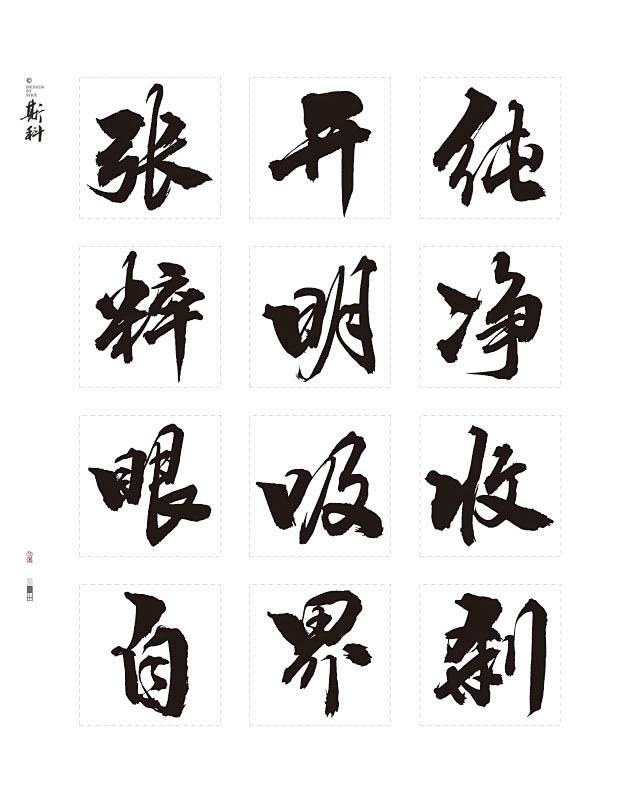 ©
DESIGN
BY
SIKE
斯科
张 开 纯
粹 明 净
眼 吸 收
自 界 刹